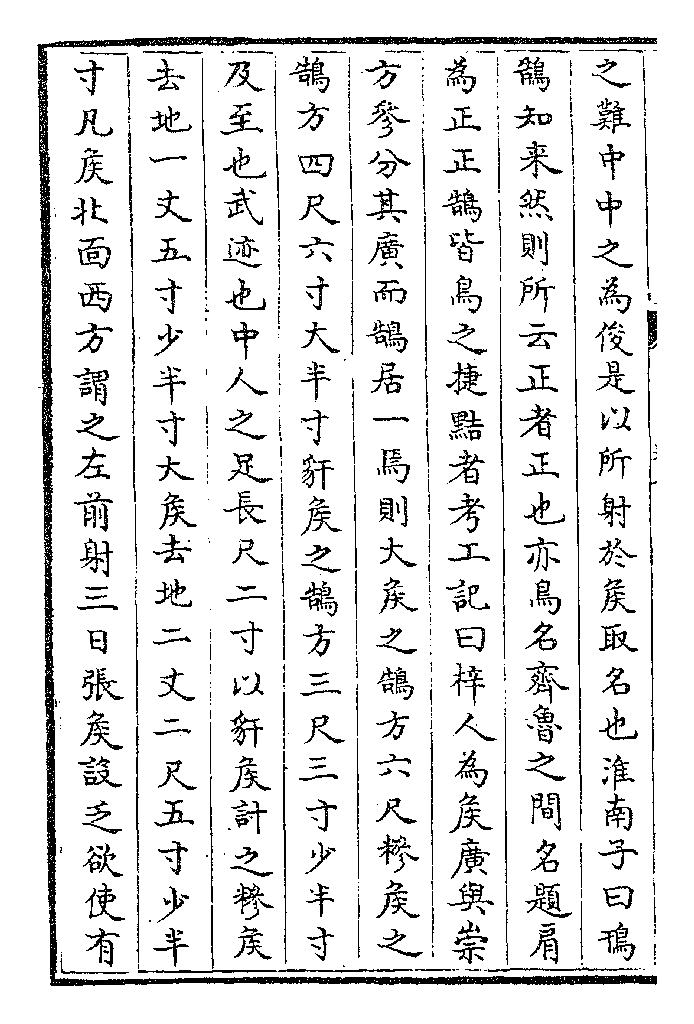 之難中中之為俊是以所射於矦取名也淮南子曰鳱
鵠知来然則所云正者正也亦鳥名齊魯之間名題肩
為正正鵠皆鳥之捷黠者考工記曰梓人為矦廣與崇
方參分其廣而鵠居一焉則大矦之鵠方六尺糝矦之
鵠方四尺六寸大半寸豻矦之鵠方三尺三寸少半寸
及至也武迹也中人之足長尺二寸以豻矦計之糝矦
去地一丈五寸少半寸大矦去地二丈二尺五寸少半
寸凡矦北面西方謂之左前射三日張矦設乏欲使有